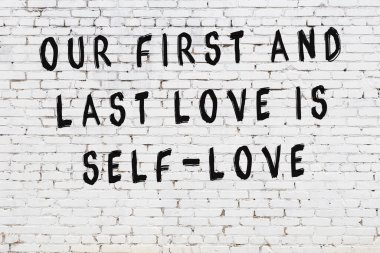 OUR FIRST AND
LAST LOVE IS
SELF-LOVE